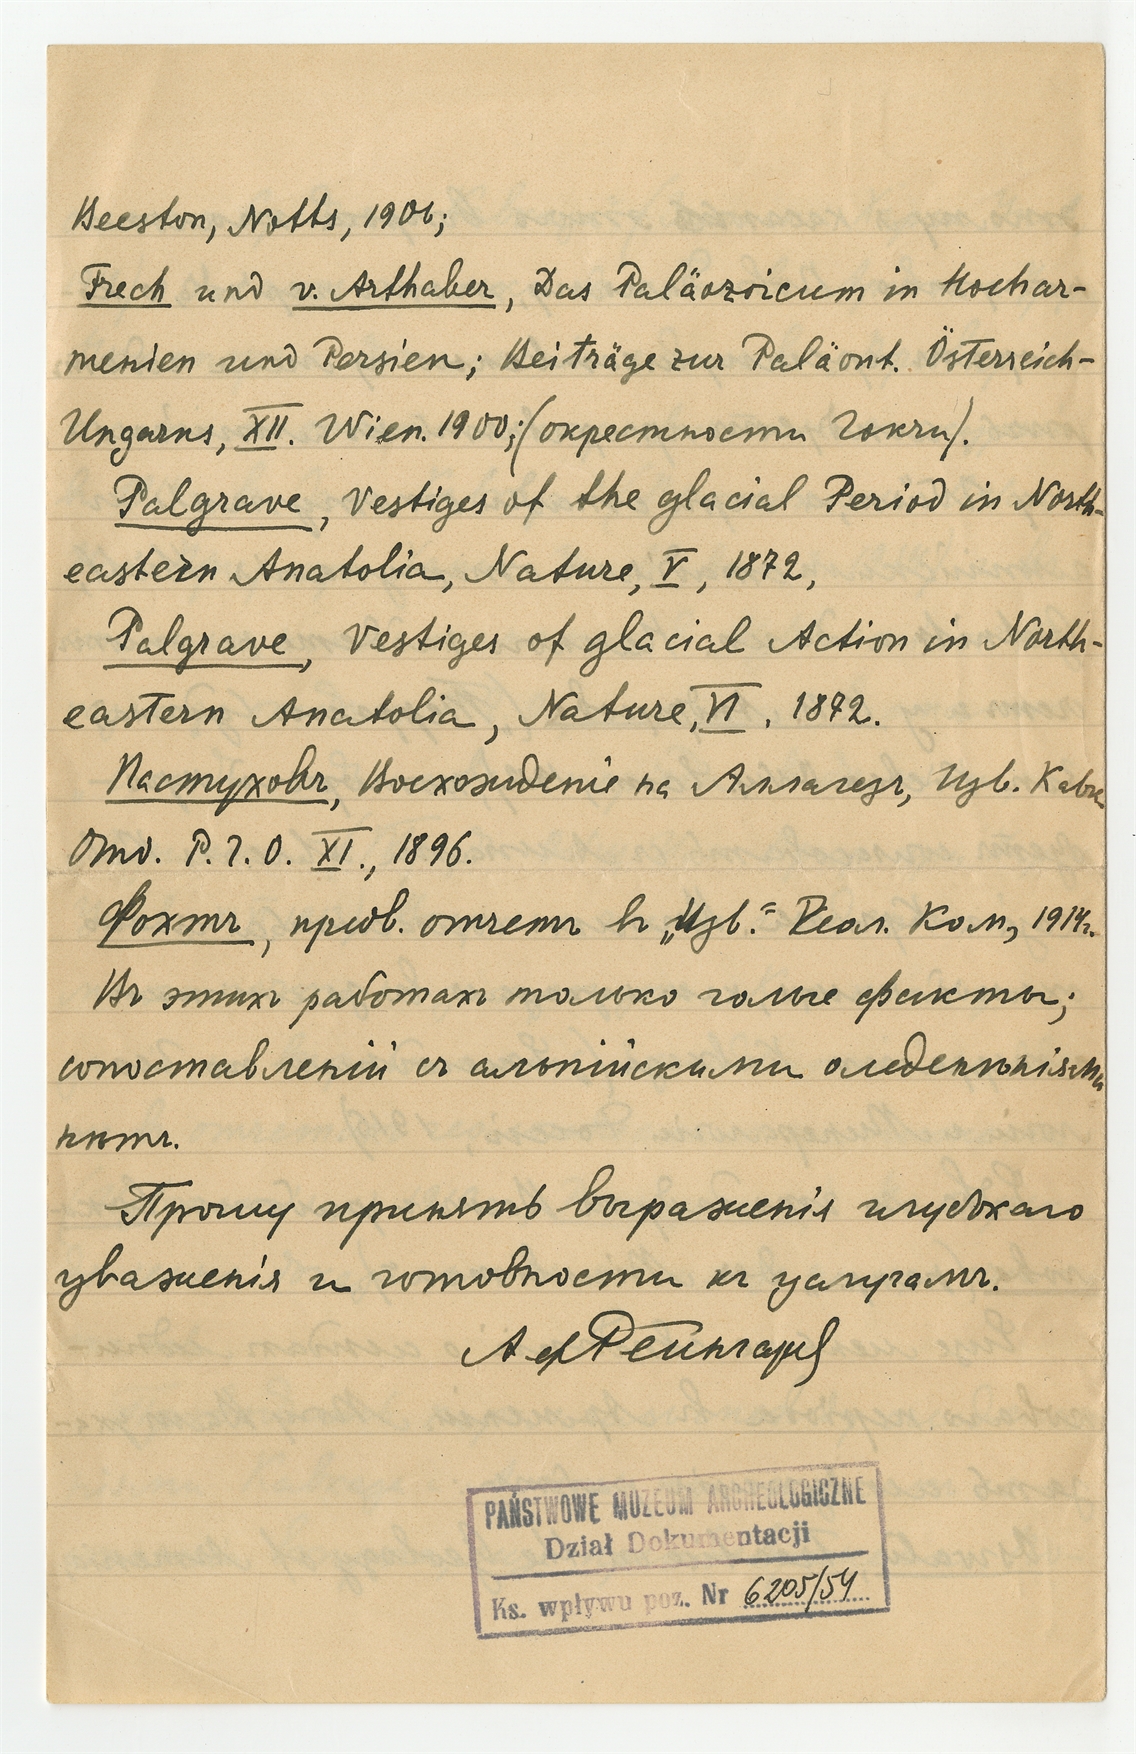 Beeston, Notts, 1901;
Frech und v. Arthaber, Das Paläozoicum in Hochar-
menien und Persien; Beiträge zur Paläont. Österreich-
Ungarns, XII. Wien. 1900; (окрестности Гокчи).
Palgrave, Vestiges of the glacial Period in North-
eastern Anatolia, Nature, V, 1872,
Palgrave, Vestiges of glacial Action in North-
eastern Anatolia, Nature, VI, 1872.
Пастуховъ, Восхожденіе на Алагезъ, Изв. Кавк.
Отд. Р.Г.О. XI., 1896.
Фохтъ, предв. отчетъ въ „Изв.“ Геол. Ком., 1914г.
Въ этихъ работахъ только голые факты;
сопоставленій съ альпійскими оледенѣніями
нѣтъ.
Прошу принять выраженія глубокаго
уваженія и готовности къ услугамъ.
А Рейнгард
PAŃSTWOWE MUZEUM ARCHEOLOGICZNE
Dział Dokumentacji
Ks. wpływu poz. Nr 6205/54